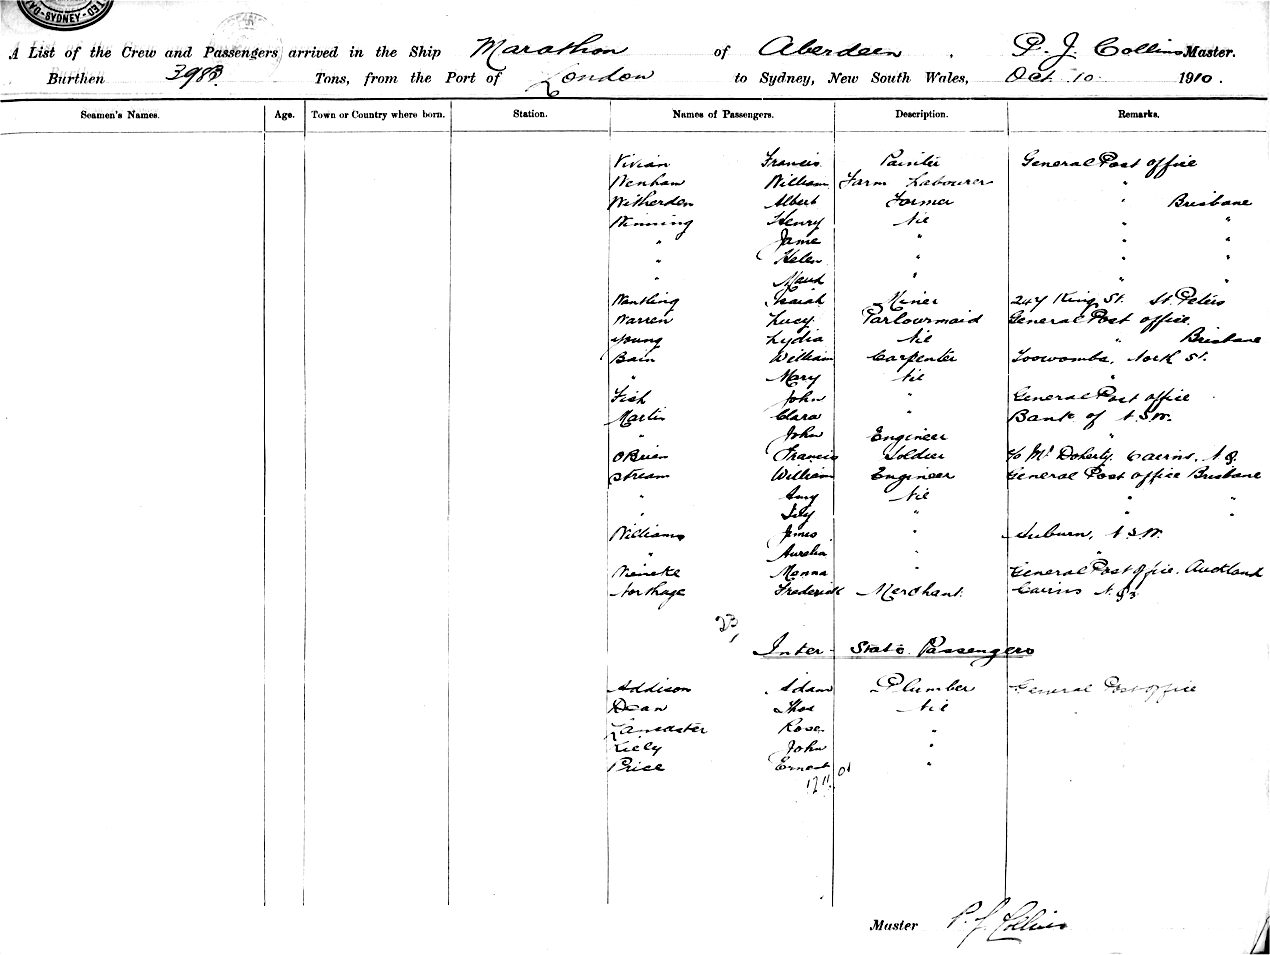 SYDNEY
A List of the Crew and Passengers arrived in the Ship Marathon of Aberdeen, P. J. Collins Master.
Burthen 3983 Tons, from the Port of London to Sydney, New South Wales, Oct 10 1910.
Seamen's Names. Age. Town or Country where born. Station. Names of Passengers. Description. Remarks.
Vivian Francis Painter General Post office
Wenham William Farm Labourer "
Witherden Albert Farmer " Brisbane
Winning Henry Nil " "
" Jame " " "
" Helen " " "
" Maud " " "
Wantling Isaiah Miner 247 King St. St. Peters
Warren Lucy Parlourmaid General Post office
Young Lydia Nil " Brisbane
Bain William Carpenter Toowomba, North St.
" Mary Nil "
Fish John " General Post office
Martin Clara " Bank of N.S.W.
" John Engineer "
O'Brien Francis Soldier c/o Mr Doherty. Cairns. N.Q.
Stream William Engineer General Post office Brisbane
" Amy Nil " "
" Lily " " "
Williams James " Auburn, N.S.W.
" Aurelia " "
Menna " General Post office. Auckland
Northage Frederick Merchant Cairns N.Q.
23
Inter-State Passengers
Addison Adam Plumber General Post office
Dean Thos Nil
Lancaster Rose "
Kiely John "
Price Ernest "
Master P. J. Collins